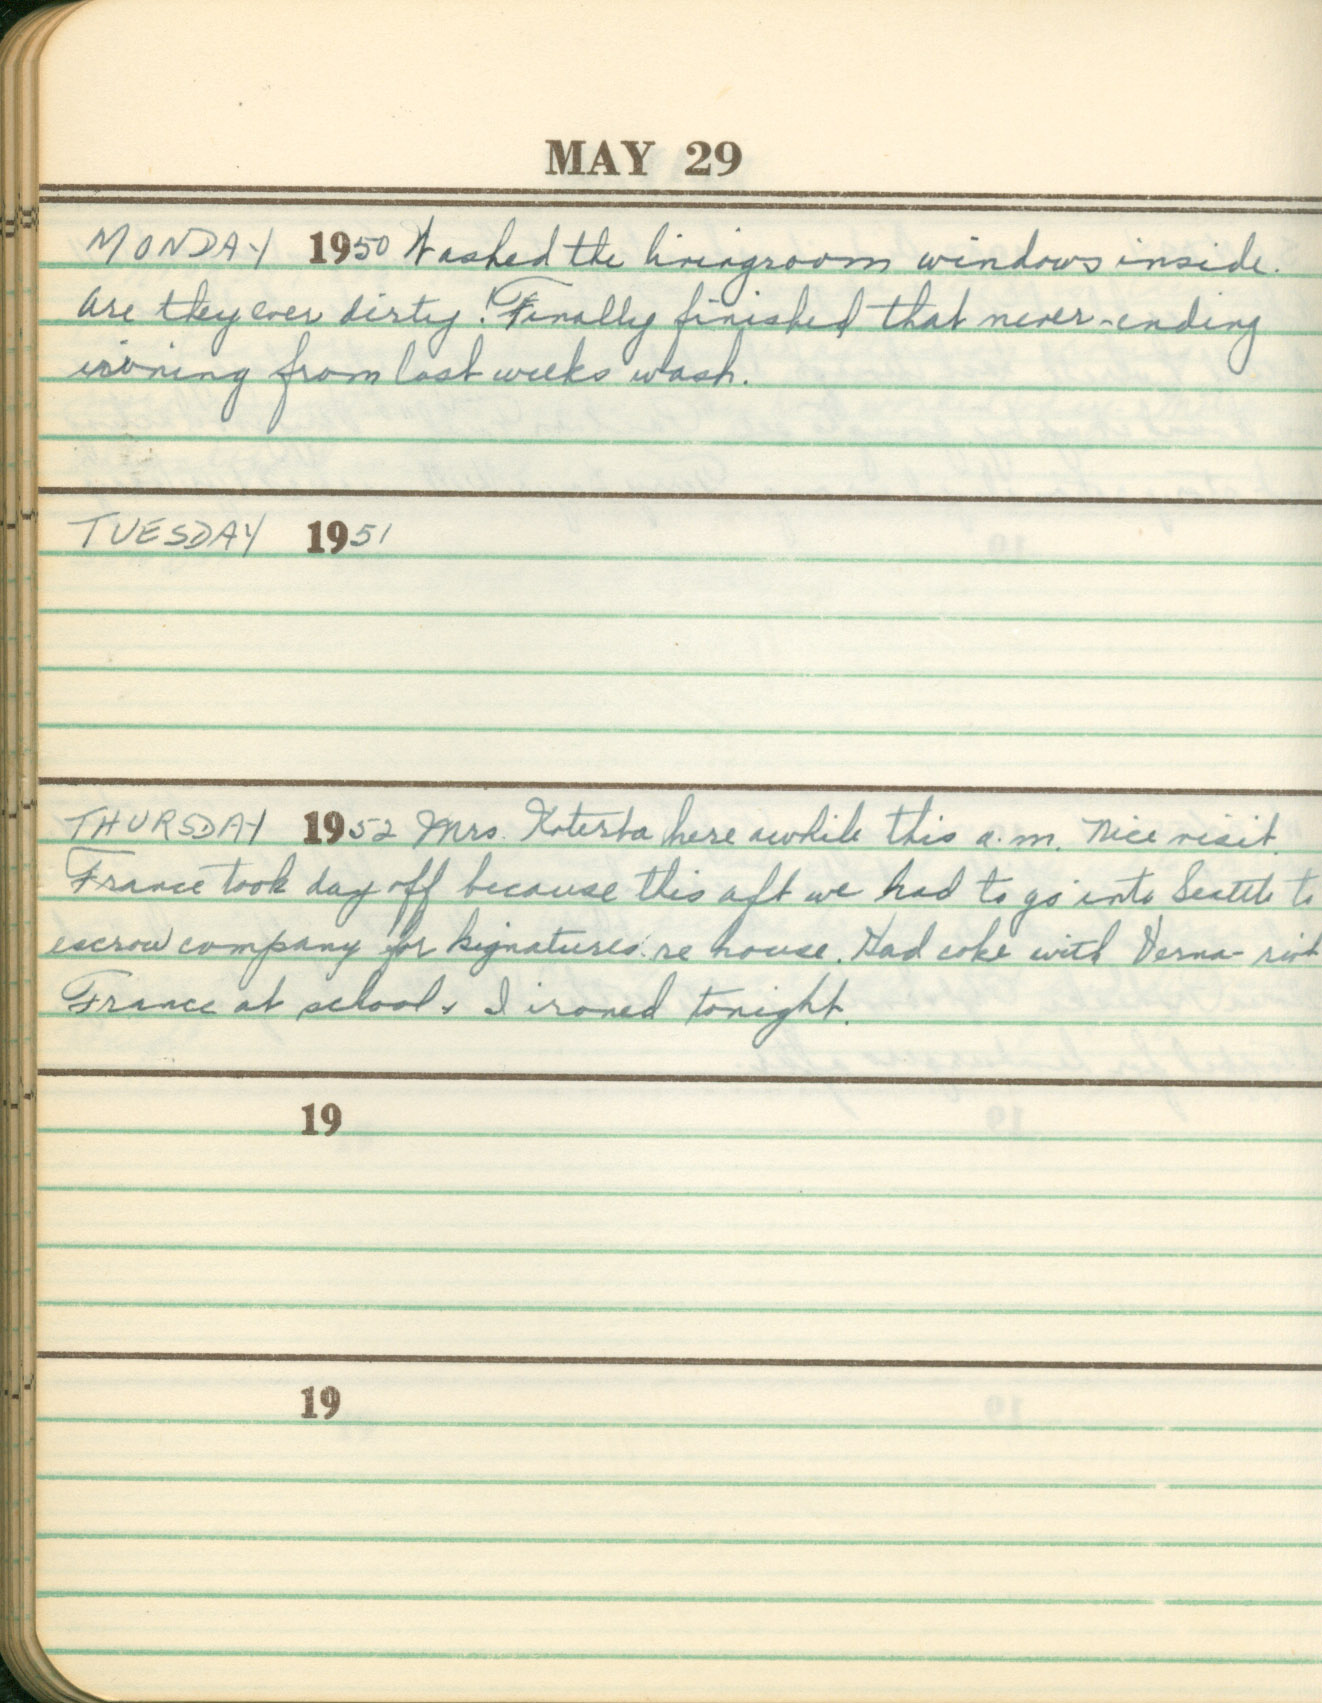 MAY 29
MONDAY 1950 Washed the livingroom windows inside.
Are they ever dirty! Finally finished that never-ending
ironing from last weeks wash.
TUESDAY 1951
THURSDAY 1952 Mrs. Koterba here awhile this a.m. Nice visit.
France took day off because this aft we had to go into Seattle to
escrow company for signatures re house. Had coke with Verna-
France at school. I ironed tonight.
19
19